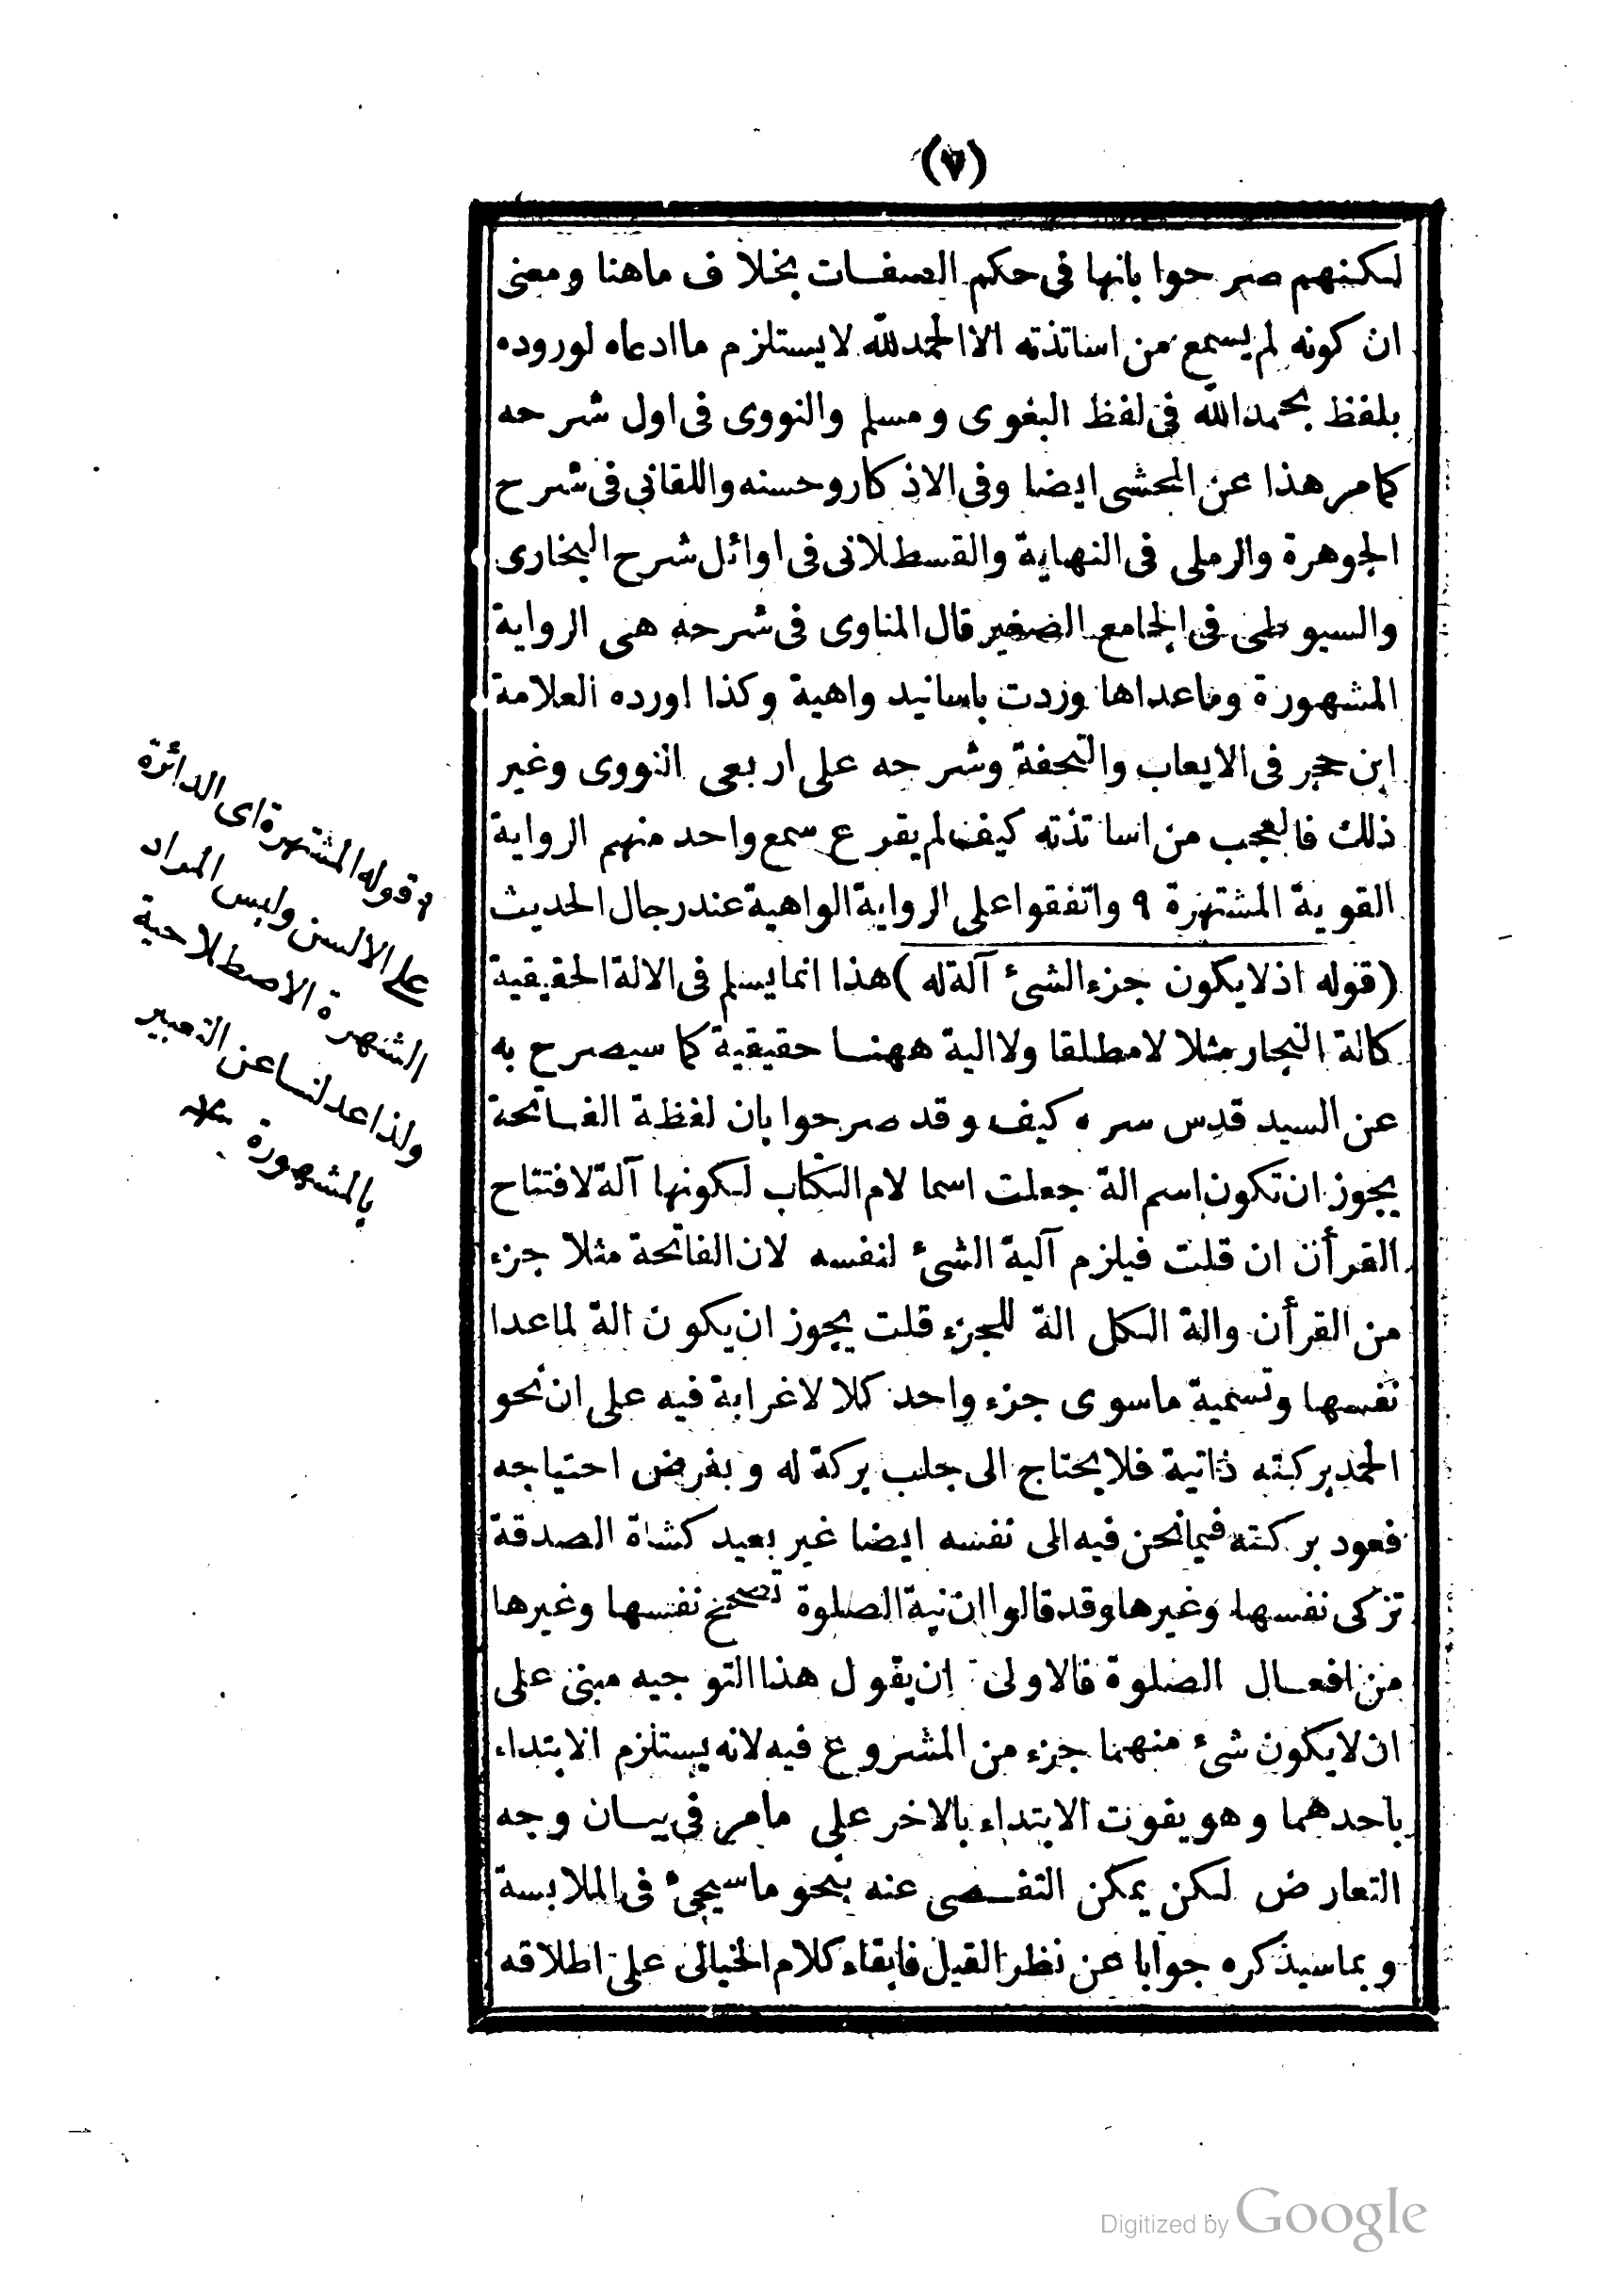 (٧)
لكنهم صرحوا بانها فى حكم الصفات بخلاف ماهنا ومعنى
ان كونه لم يسمع من اساتذته الا الحمدلله لايستلزم ماادعاه لوروده
بلفظ بحمدالله فى لفظ البغوى ومسلم والنووى فى اول شرحه
كمامر هذا عن المحشى ايضا وفى الاذكار وحسنه واللقانى فى شرح
الجوهرة والرملى فى النهاية والقسطلانى فى اوائل شرح البخارى
والسيوطى فى الجامع الصغير قال المناوى فى شرحه هى الرواية
المشهورة وماعداها وردت باسانيد واهية وكذا اورده العلامة
ابن حجر فى الايعاب والتحفة وشرحه على اربعى النووى وغير
ذلك فالعجب من اساتذته كيف لم يقرع سمع واحد منهم الرواية
القوية المشتهرة ٩ واتفقوا على الرواية الواهية عند رجال الحديث
(قوله اذ لايكون جزء الشئ آلة له) هذا انما يسلم فى الالة الحقيقية
كالة النجار مثلا لامطلقا ولا الية ههنا حقيقية كما سيصرح به
عن السيد قدس سره كيف وقد صرحوا بان لفظة الفاتحة
يجوز ان تكون اسم الة جعلت اسما لام الكتاب لكونها آلة لافتتاح
القرأن ان قلت فيلزم آلية الشئ لنفسه لان الفاتحة مثلا جزء
من القرأن والة الكل الة للجزء قلت يجوز ان يكون الة لماعدا
نفسها وتسمية ماسوى جزء واحد كلا لاغرابة فيه على ان نحو
الحمد بركته ذاتية فلا يحتاج الى جلب بركة له وبفرض احتياجه
فعود بركته فيمانحن فيه الى نفسه ايضا غير بعيد كشاة الصدقة
تزكى نفسها وغيرها وقد قالوا ان نية الصلوة تصحح نفسها وغيرها
من افعال الصلوة فالاولى ان يقول هذا التوجيه مبنى على
ان لايكون شئ منهما جزء من المشروع فيه لانه يستلزم الابتداء
باحدهما وهو يفوت الابتداء بالاخر على مامر فى بيان وجه
التعارض لكن يمكن التفصى عنه بنحو ماسيجئ فى الملابسة
وبماسيذكره جوابا عن نظر القيل فابقاء كلام الخيالى على اطلاقه
٩ قوله المشتهرة اى الدائرة
على الالسن وليس المراد
الشهرة الاصطلاحية
ولذا عدلنا عن التعبير
بالمشهورة
Digitized by Google